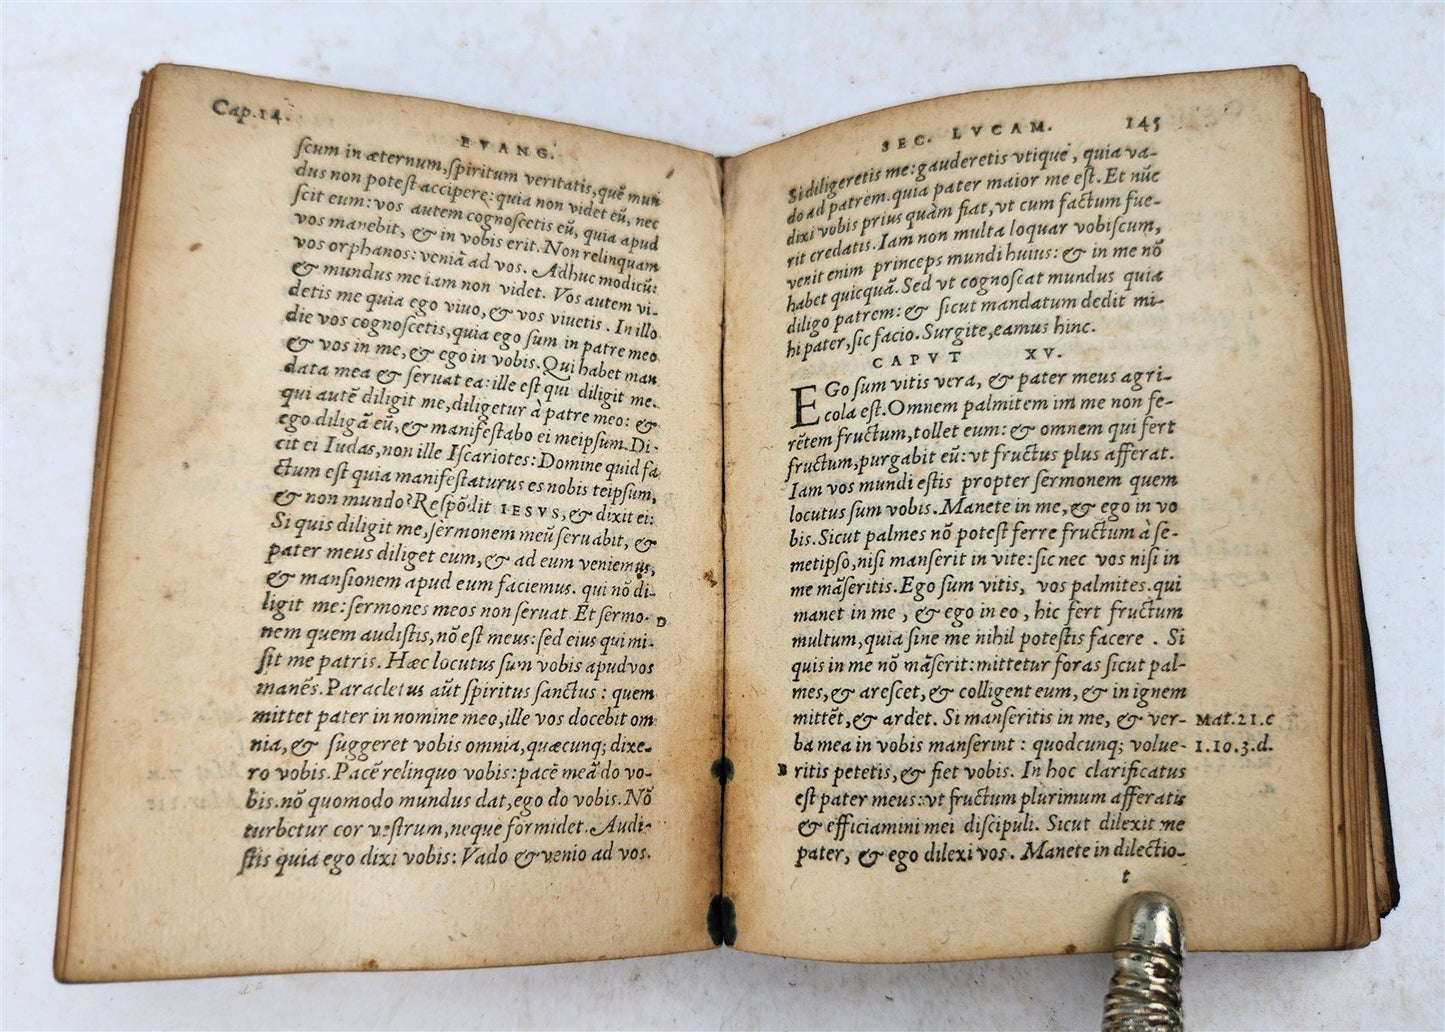 Cap.14.
EVANG.
ſcum in æternum, ſpiritum veritatis, quẽ mun
dus non poteſt accipere: quia non videt eũ, nec
ſcit eum: vos autem cognoſcetis eũ, quia apud
vos manebit, & in vobis erit. Non relinquam
vos orphanos: veniã ad vos. Adhuc modicũ:
& mundus me iam non videt. Vos autem vi-
detis me quia ego vivo, & vos vivetis. In illo
die vos cognoſcetis, quia ego ſum in patre meo
& vos in me, & ego in vobis. Qui habet man
data mea & ſervat ea: ille eſt qui diligit me.
qui autẽ diligit me, diligetur à patre meo: &
ego diligã eũ, & manifeſtabo ei meipſum. Di-
cit ei Iudas, non ille Iſcariotes: Domine quid fa
ctum eſt quia manifeſtaturus es nobis teipſum,
& non mundo? Reſpõdit IESVS, & dixit ei:
Si quis diligit me, ſermonem meũ ſervabit, &
pater meus diliget eum, & ad eum veniemus,
& manſionem apud eum faciemus. qui nõ di-
ligit me: ſermones meos non ſervat. Et ſermo- D
nem quem audiſtis, nõ eſt meus: ſed eius qui mi-
ſit me patris. Hæc locutus ſum vobis apud vos
manẽs. Paracletus aũt ſpiritus ſanctus: quem
mittet pater in nomine meo, ille vos docebit om
nia, & ſuggeret vobis omnia, quæcunq; dixe-
ro vobis. Pacẽ relinquo vobis: pacẽ meã do vo-
bis. nõ quomodo mundus dat, ego do vobis. Nõ
turbetur cor veſtrum, neque formidet. Audi-
ſtis quia ego dixi vobis: Vado & venio ad vos.
SEC. LVCAM. 145
Si diligeretis me: gauderetis vtique, quia va-
do ad patrem. quia pater maior me eſt. Et nũc
dixi vobis prius quàm fiat, vt cum factum fue-
rit credatis. Iam non multa loquar vobiſcum,
venit enim princeps mundi huius: & in me nõ
habet quicquã. Sed vt cognoſcat mundus quia
diligo patrem: & ſicut mandatum dedit mi-
hi pater, ſic facio. Surgite, eamus hinc.
CAPVT XV.
EGo ſum vitis vera, & pater meus agri-
cola eſt. Omnem palmitem in me non fe-
rẽtem fructum, tollet eum: & omnem qui fert
fructum, purgabit eũ: vt fructus plus afferat.
Iam vos mundi eſtis propter ſermonem quem
locutus ſum vobis. Manete in me, & ego in vo
bis. Sicut palmes nõ poteſt ferre fructum à ſe-
metipſo, niſi manſerit in vite: ſic nec vos niſi in
me mãſeritis. Ego ſum vitis, vos palmites. qui
manet in me, & ego in eo, hic fert fructum
multum, quia ſine me nihil poteſtis facere. Si
quis in me nõ mãſerit: mittetur foras ſicut pal-
mes, & areſcet, & colligent eum, & in ignem
mittẽt, & ardet. Si manſeritis in me, & ver- Mat.21.c
ba mea in vobis manſerint: quodcunq; volue- 1.Io.3.d.
B ritis petetis, & fiet vobis. In hoc clarificatus
eſt pater meus: vt fructum plurimum afferatis
& efficiamini mei diſcipuli. Sicut dilexit me
pater, & ego dilexi vos. Manete in dilectio-
t